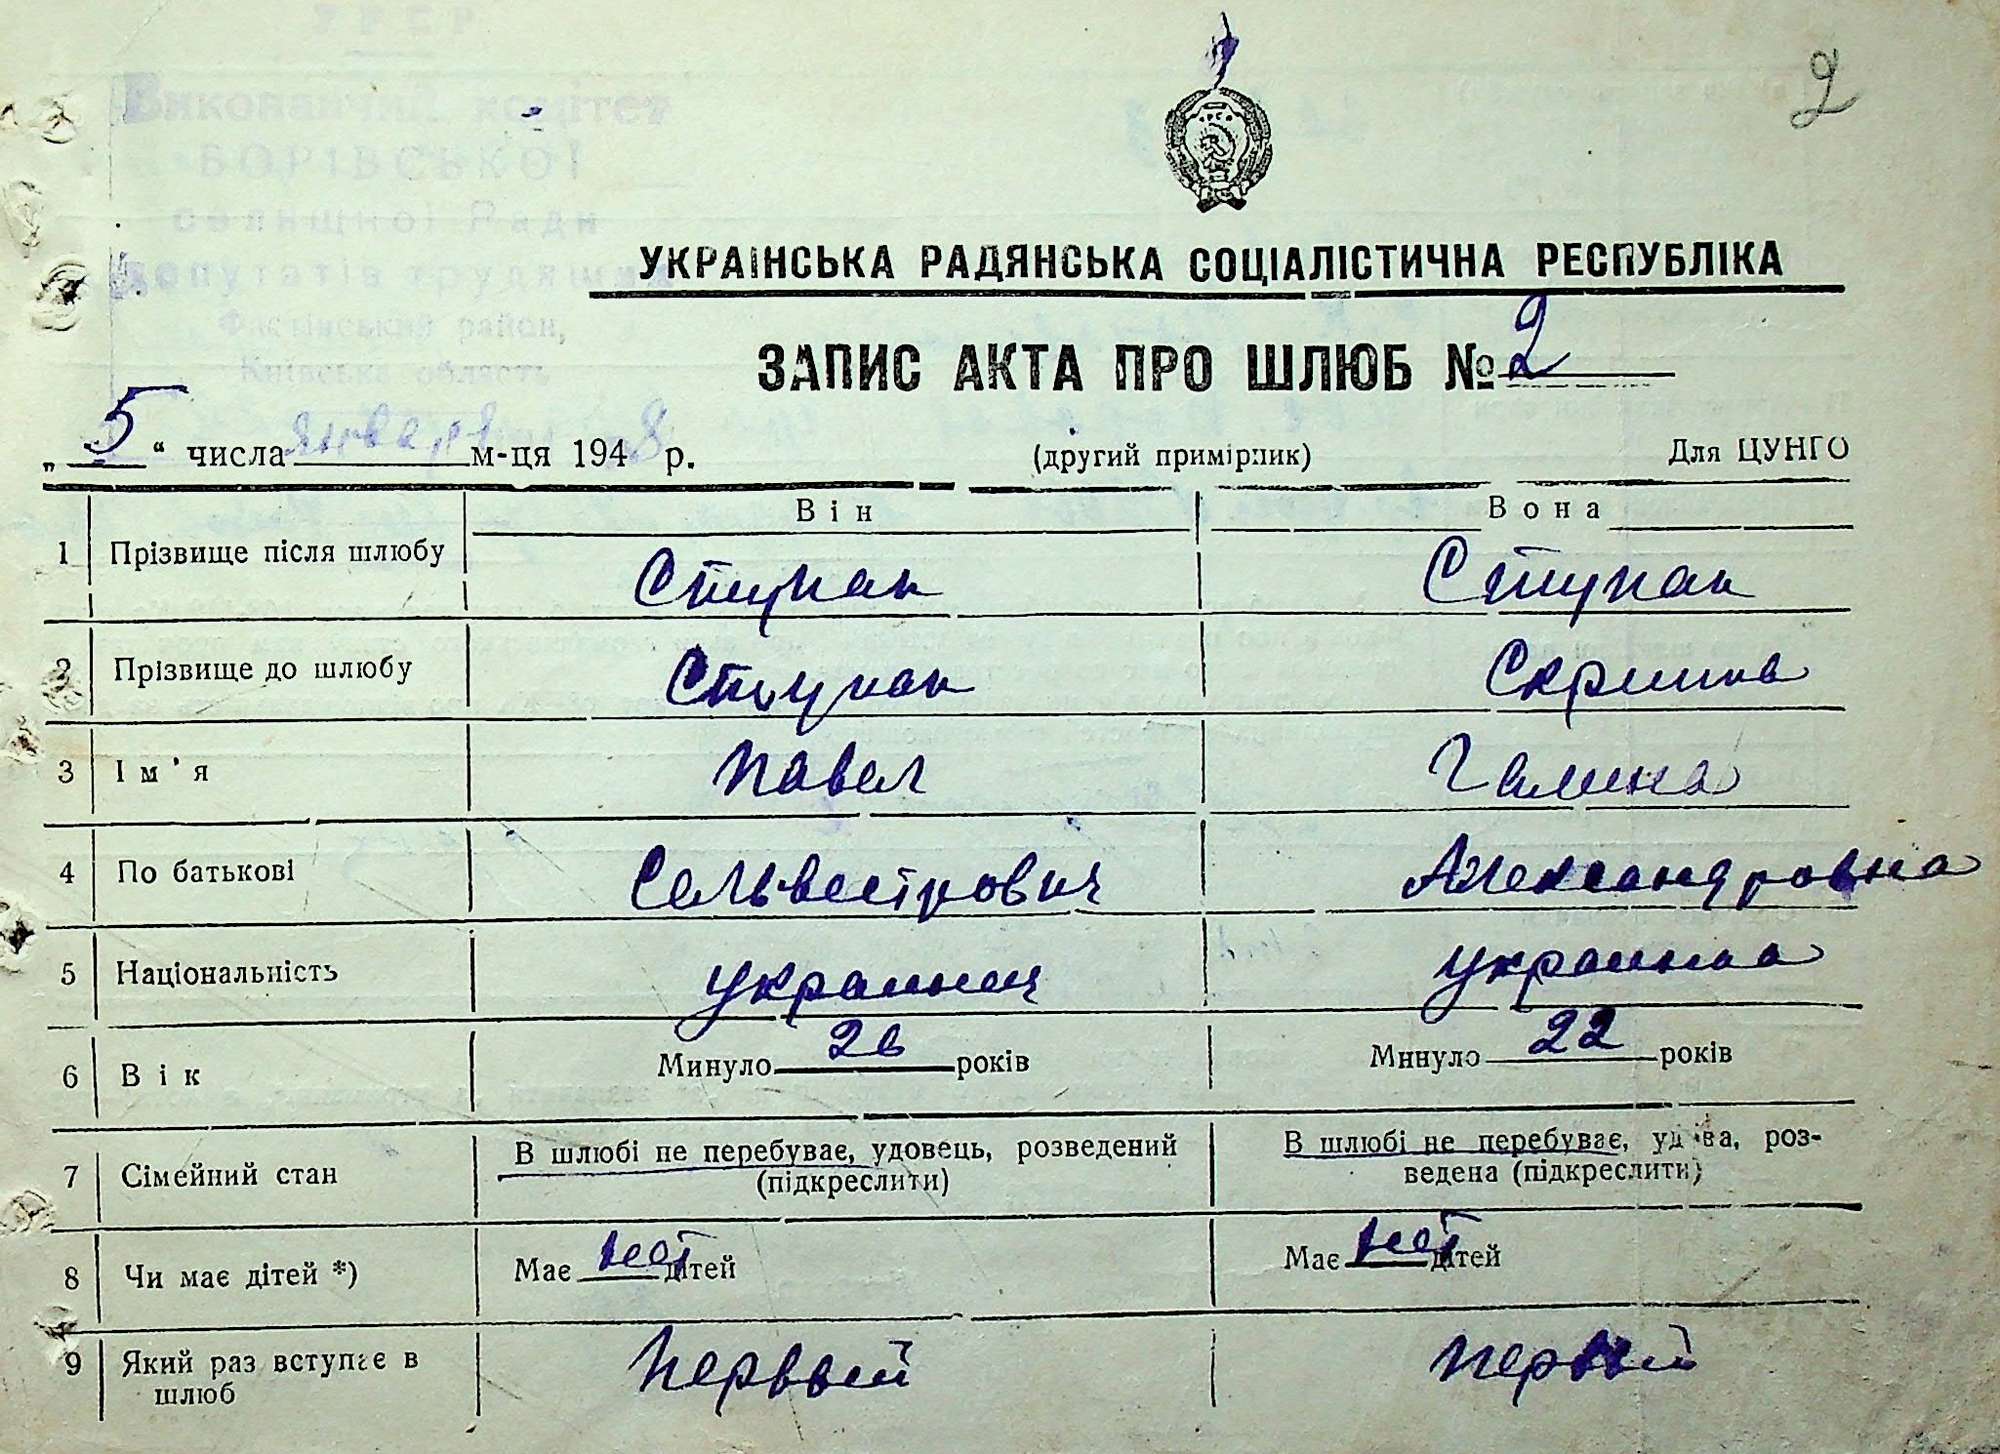 УРСР
Виконавчий комітет
БОРІВСЬКОЇ
селищної Ради
депутатів трудящих
Фастівський район,
Київська область
2
УКРАЇНСЬКА РАДЯНСЬКА СОЦІАЛІСТИЧНА РЕСПУБЛІКА
ЗАПИС АКТА ПРО ШЛЮБ № 2
„5“ числа января м-ця 1948 р. (другий примірник) Для ЦУНГО
Він Вона
1 Прізвище після шлюбу Ступак Ступак
2 Прізвище до шлюбу Ступак Скрипка
3 Ім'я Павел Галина
4 По батькові Сельвестрович Александровна
5 Національність украинец украинка
6 Вік Минуло 26 років Минуло 22 років
7 Сімейний стан В шлюбі не перебуває, удовець, розведений (підкреслити) В шлюбі не перебуває, удова, роз-
ведена (підкреслити)
8 Чи має дітей *) Має нет дітей Має нет дітей
9 Який раз вступає в шлюб Первый первый